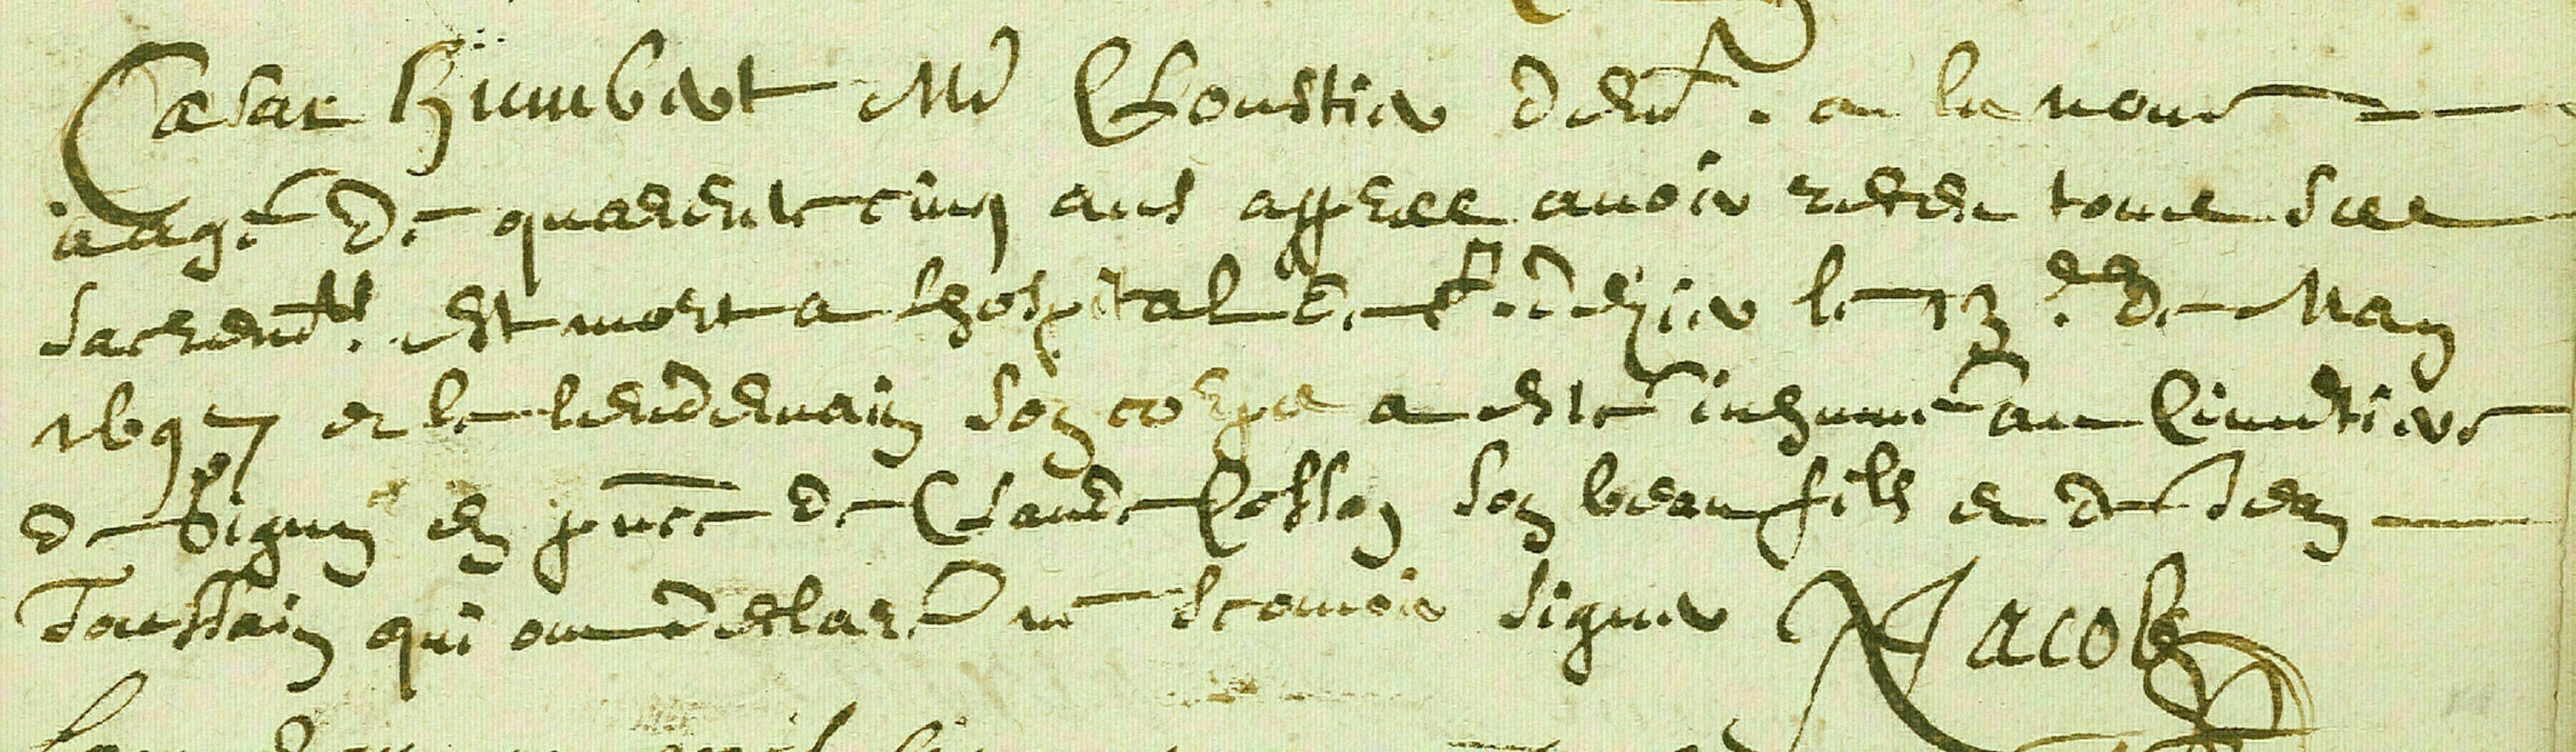 Cesar Humbert Md Cloustier demt. a la noue
aagé de quarente cinq ans appres avoir receu tous ses
sacremts. est mort a lhospital de st. dizier le 13e. de May
1697 et le lendemain son corps a esté inhumé au Cimetiere
de Bigny en pnce de Claude Colson son beau fils et de Jean
Toussain qui ont declaré ne scavoir signer N Jacob